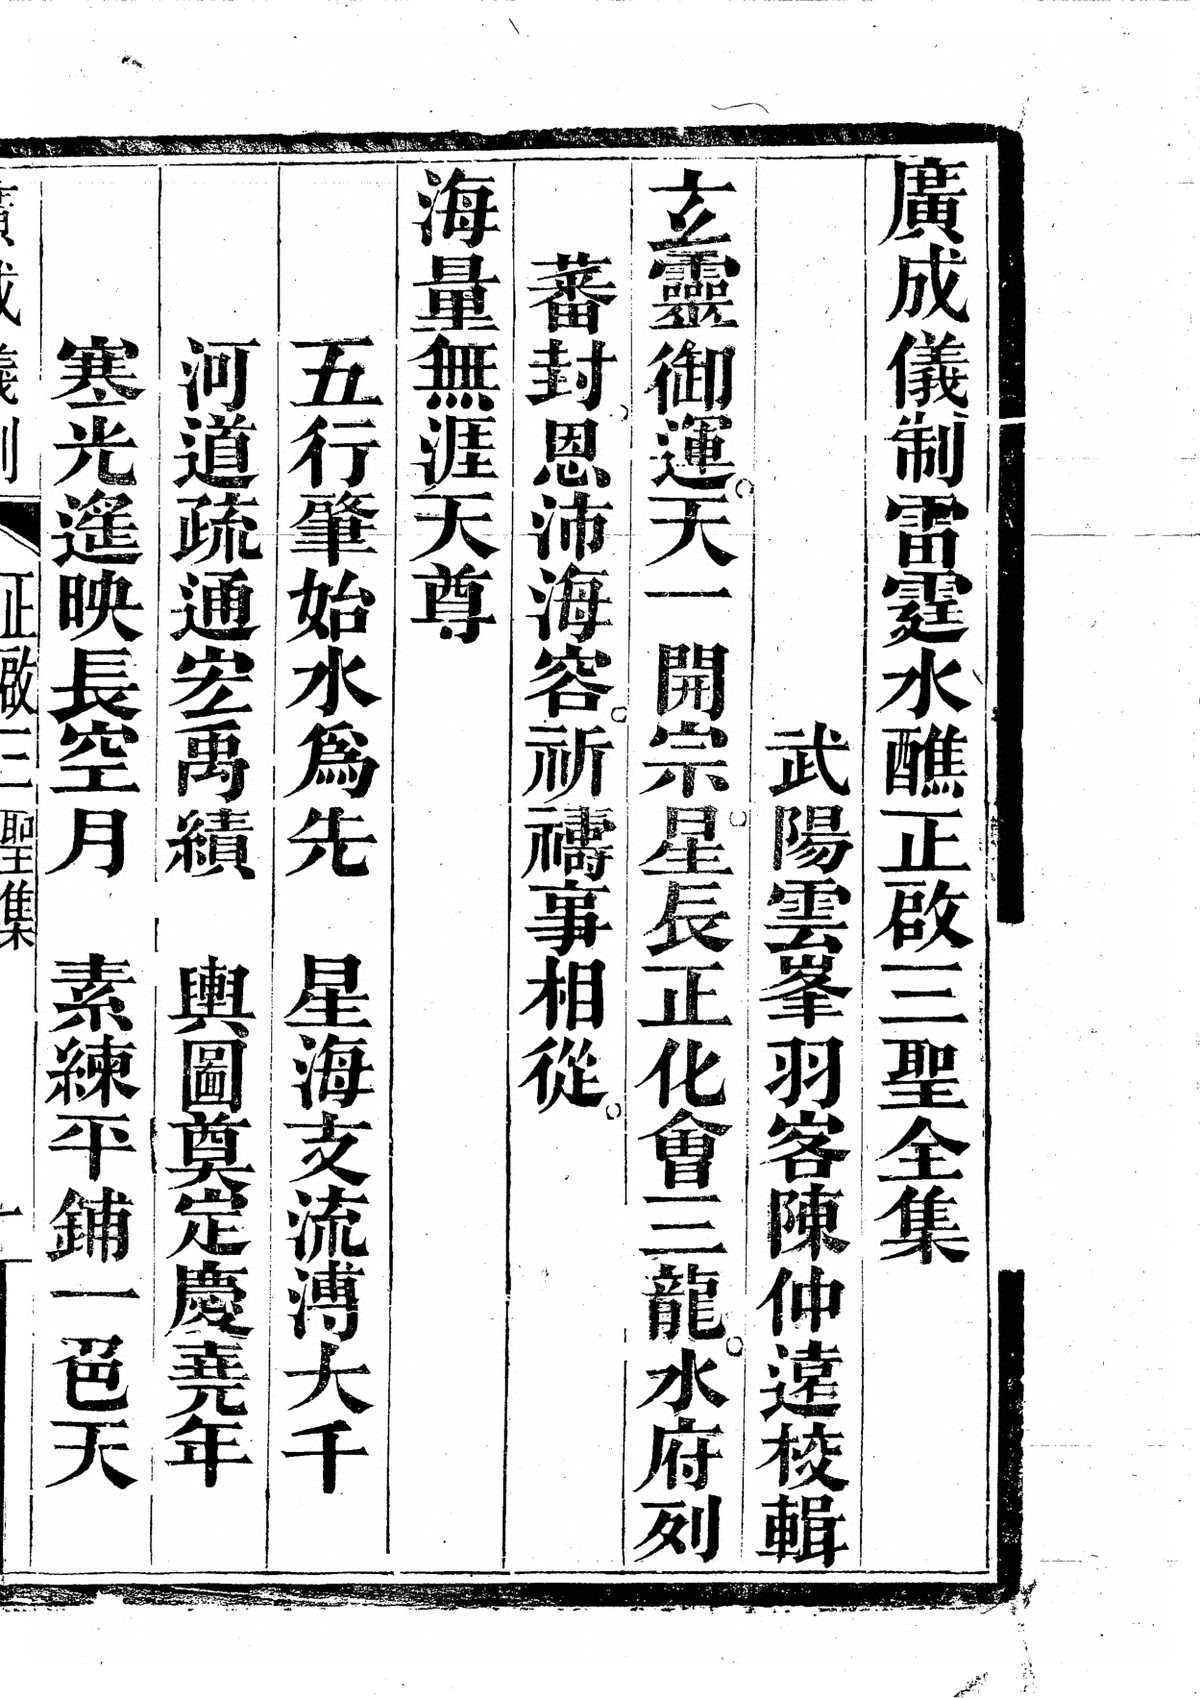 廣成儀制雷霆水醮正啟三聖全集
武陽雲峯羽客陳仲遠校輯
玄靈御運。天一開宗。星長正化會三龍。水府列
蕃封。恩沛海容。祈禱事相從。
海量無涯天尊
五行肇始水為先　星海支流溥大千
河道疏通宏禹績　輿圖奠定慶堯年
寒光遙映長空月　素練平鋪一色天
廣成儀制　正啟三聖集　一